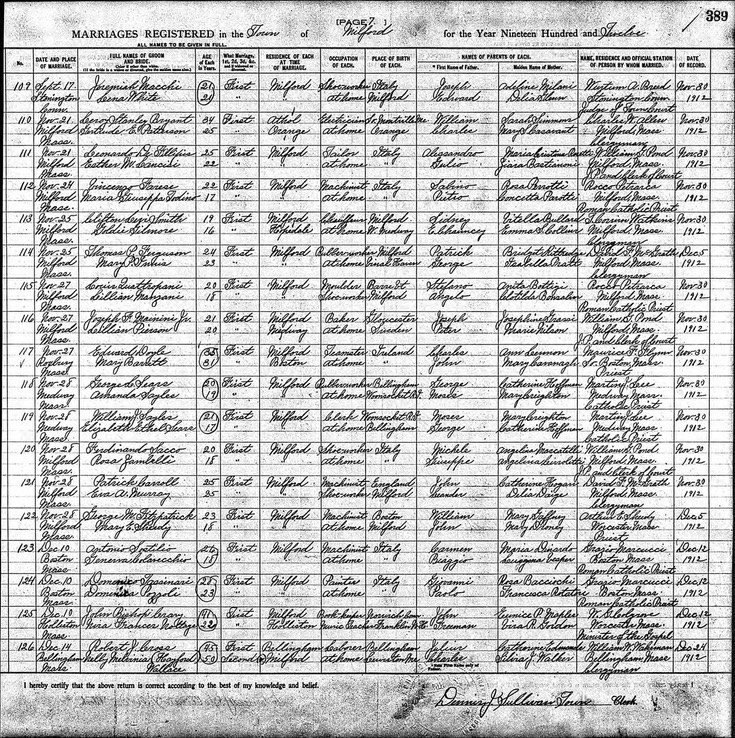 389
[PAGE 7.]
MARRIAGES REGISTERED in the Town of Milford for the Year Nineteen Hundred and Twelve
ALL NAMES TO BE GIVEN IN FULL.
No. DATE AND PLACE OF MARRIAGE. FULL NAMES OF GROOM AND BRIDE. AGE of Each in Years What Marriage, 1st, 2d, 3d, &c. RESIDENCE OF EACH AT TIME OF MARRIAGE. OCCUPATION OF EACH. PLACE OF BIRTH OF EACH. NAMES OF PARENTS OF EACH. NAME, RESIDENCE AND OFFICIAL STATION OF PERSON BY WHOM MARRIED. DATE OF RECORD.
* First Name of Father. Maiden Name of Mother.
109 Sept. 17 Jeremiah Macchi 21 First Milford Shoeworker Italy Joseph Nov. 30
Stonington Lena White 21 " at home Milford Edward 1912
Conn.
110 Nov. 21 Leroy Stanley Bryant 34 First Athol Electrician William Sarah Simmons Charles W. Allen Nov. 30
Milford Gertrude E. Paterson 25 " Orange at home Orange Charles Milford Mass 1912
Mass. Clergyman
111 Nov. 21 25 First Milford Tailor Italy Alessandro William G. Pond Nov. 30
Milford Esther M. Cancini 22 " at home " Julio Milford, Mass. 1912
Mass. J.P. and Clerk of Court
112 Nov. 24 Vincenzo Varese 22 First Milford Machinist Italy Sabino Rosa Parotti Rocco Petrarca Nov. 30
Milford Maria Giuseppa 17 " at home " Pietro Concetta Milford Mass. 1912
Mass. Roman Catholic Priest
113 Nov. 25 Clifton Smith 19 First Milford Chauffeur Milford Sidney Estella Bullard Nov. 30
Milford Goldie Gilmore 16 " Hopedale at home W. Medway Chauncey Emma S. Milford Mass. 1912
Mass. Clergyman
114 Nov. 25 Thomas P. Ferguson 24 First Milford Rubberworker Milford Patrick Bridget David F. McGrath Dec 5
Milford Mary P. 23 " at home Vinal Haven George Isabella Pratt Milford Mass. 1912
Mass. Clergyman
115 Nov. 27 Louis Quattropani 20 First Milford Moulder Barre Vt Stefano Anita Bottigi Rocco Petrarca Nov. 30
Milford Lillian Manzani 18 " Shoeworker Milford Angelo Milford Mass 1912
Mass. Roman Catholic Priest
116 Nov. 27 Joseph F. Mainini Jr. 21 First Milford Baker Gloucester Joseph Josephine Grassi William G. Pond Nov. 30
Milford Lillian Pierson 20 " Medway at home Sweden Peter Marie Nilson Milford Mass 1912
Mass. J.P. and Clerk of Court
117 Nov. 27 Edward Doyle 33 First Milford Teamster Ireland Charles Ann Lennon Maurice F. Flynn Nov. 30
Roxbury Mary Barrett 31 " Boston at home " John Mary Cavanagh So. Boston Mass 1912
Mass. Priest
118 Nov. 28 George A. Sears 20 First Milford Rubberworker Bellingham George Catherine Hoffman Martin J. Lee Nov. 30
Medway Amanda Sayles 19 " at home Woonsocket R.I. Moses Mary Creighton Medway Mass. 1912
Mass. Catholic Priest
119 Nov. 28 William J. Sayles 21 First Milford Clerk Woonsocket R.I. Moses Mary Creighton Martin J. Lee Nov. 30
Medway Elizabeth Ethel Sears 17 " at home Bellingham George Catherine Hoffman Medway Mass 1912
Mass. Catholic Priest
120 Nov. 28 Ferdinando Sacco 20 First Milford Shoeworker Italy Michele Angelina William G. Pond Nov. 30
Milford Rosa Zambelli 18 " at home " Giuseppe Milford Mass. 1912
Mass. J.P. and Clerk of Court
121 Nov. 28 Patrick Carroll 25 First Milford Machinist England John Catherine Hogan David F. McGrath Nov. 30
Milford Eva A. Murray 25 " Shoeworker Milford Leander Delia Milford Mass. 1912
Mass. Clergyman
122 Nov. 28 George W. Fitzpatrick 23 First Milford Machinist Boston William Mary Gaffney Dec. 5
Milford Mary E. Sheedy 18 " at home Milford John Mary Worcester Mass 1912
Mass. Priest
123 Dec. 10 Antonio 26 First Milford Machinist Italy Carmen Maria Dinardo Grazio Marcucci Dec. 12
Boston 18 " at home " Biaggio Boston Mass. 1912
Mass. Roman Catholic Priest
124 Dec. 10 Domenico 28 First Milford Painter Italy Giovanni Rosa Bacciochi Grazio Marcucci Dec. 12
Boston Domenica Pozzoli 23 " at home " Paolo Francesca Boston Mass. 1912
Mass. Roman Catholic Priest
125 Dec. 10 John Bishop 41 First Milford Book-keeper John Eunice P. Maples Dec. 12
Holliston Nora Frances 22 " Holliston Music Teacher Franklin Freeman Vira R. Gordon Worcester Mass 1912
Mass Minister of the Gospel
126 Dec. 14 Robert J. Cross 45 First Bellingham Laborer Bellingham Julius Catherine Edmunds William W. Wakeman Dec. 24
Bellingham Nelly Melvina 50 Second Milford at home Lewiston Me. Charles Silvia J. Walker Bellingham Mass 1912
Mass Wallace Clergyman
I hereby certify that the above return is correct according to the best of my knowledge and belief.
Dennis J. Sullivan Town Clerk.